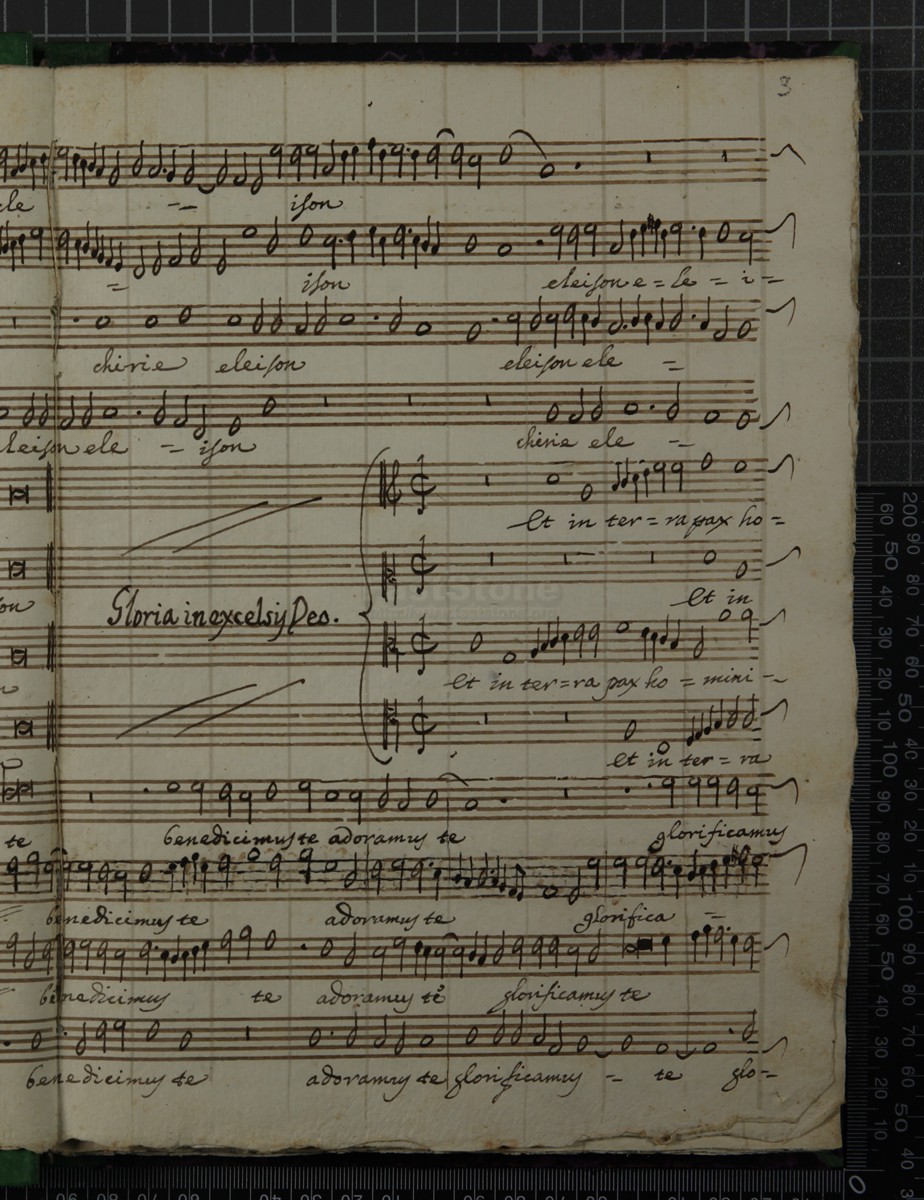 3
ele = ison
= ison eleison e = le = i =
chirie eleison eleison ele =
leison ele = ison chirie ele =
Et in ter = ra pax ho =
Et in
Gloria in excelsis Deo.
Et in ter = ra pax ho = mini =
Et in ter = ra
te benedicimus te adoramus te glorificamus
benedicimus te adoramus te glorifica =
benedicimus te adoramus te glorificamus te
benedicimus te adoramus te glorificamus = te glo =